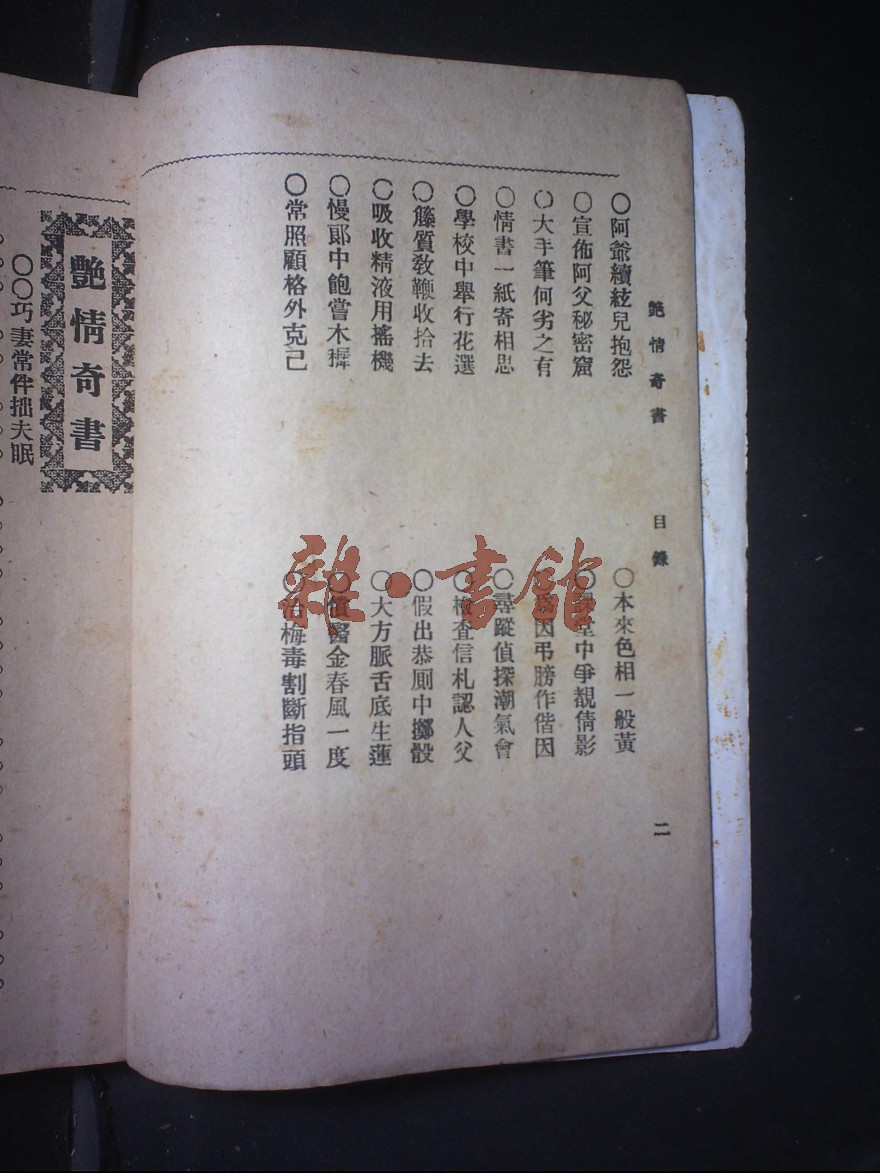 艷情奇書 目錄 二
〇阿爺續絃兒抱怨
〇本來色相一般黃
〇宣佈阿父秘密窟
堂中爭覩倩影
〇大手筆何劣之有
因弔膀作偕因
〇情書一紙寄相思
〇尋蹤偵探潮氣會
〇學校中舉行花選
〇檢查信札認人父
〇籐質敎鞭收拾去
〇假出恭厠中擲骰
〇吸收精液用搖機
〇大方脈舌底生蓮
〇慢郞中飽嘗木搱
醫金春風一度
〇常照顧格外克己
〇治梅毒割斷指頭
雜·書館
艷情奇書
〇〇巧妻常伴拙夫眠